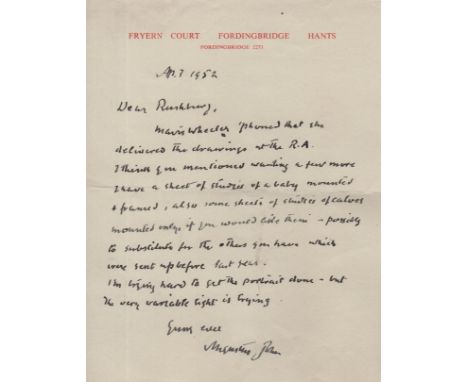 FRYERN COURT FORDINGBRIDGE HANTS
FORDINGBRIDGE 2271
Ap. 7 1952
Dear Rushbury,
Mavis Wheeler 'phoned that she
delivered the drawings at the R.A.
I think you mentioned wanting a few more
I have a sheet of studies of a baby mounted
+ framed, also some sheets of studies of calves
mounted only if you would like them – possibly
to substitute for the others you have which
were sent up before last year.
I'm trying hard to get the portrait done – but
the very variable light is trying.
Yours ever
Augustus John